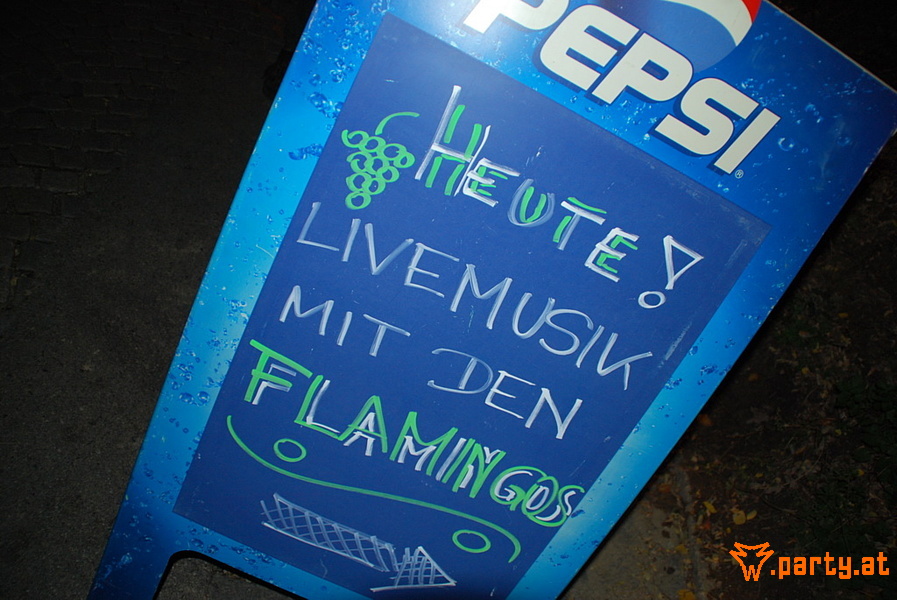 PEPSI
HEUTE!
LIVEMUSIK
MIT DEN
FLAMINGOS
W.party.at